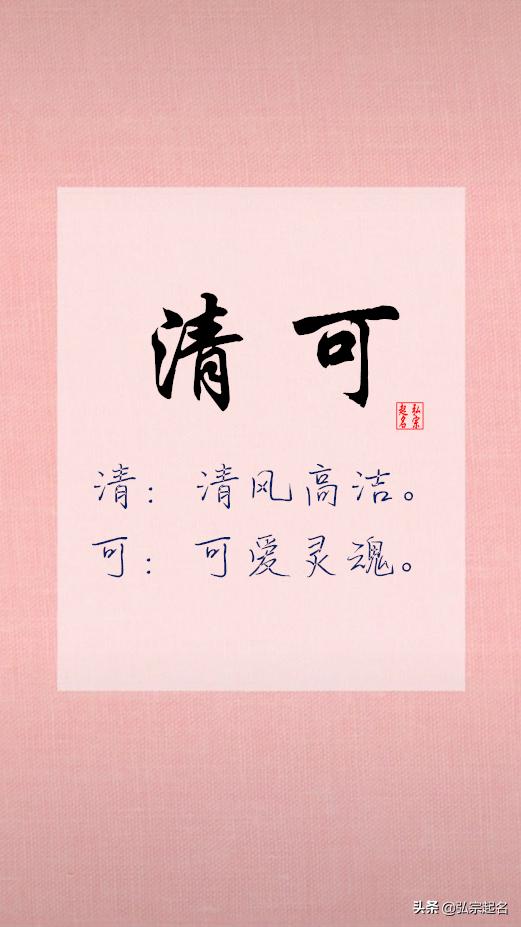 清可
弘宗起名
清：清风高洁。
可：可爱灵魂。
头条 @弘宗起名